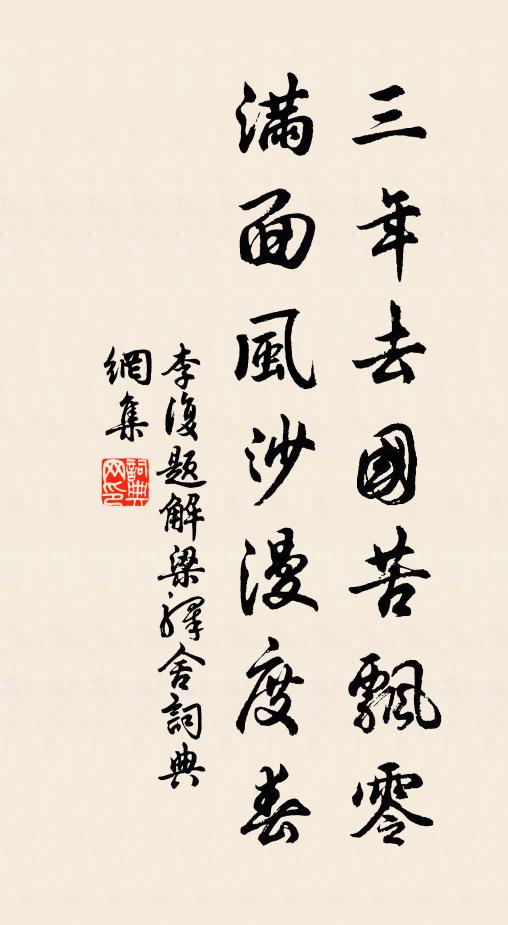 三年去國苦飄零
滿面風沙漫度春
李復題解梁驛舍詞典
網集
詞典
网印